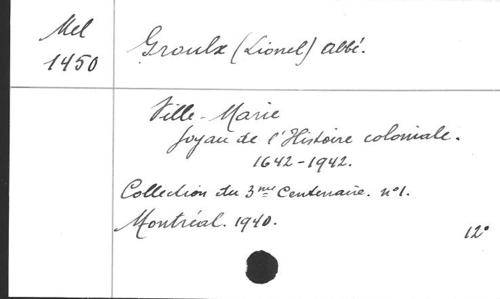 Mel
1450
Groulx (Lionel) abbé.
Ville-Marie
Joyau de l'Histoire coloniale.
1642-1942.
Collection du 3me Centenaire. n°1.
Montréal. 1940.
12°